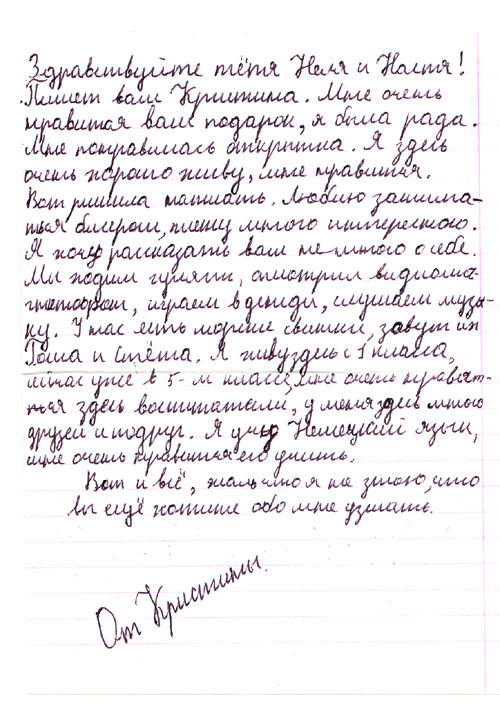 Здравствуйте тётя Неля и Настя!
Пишет вам Кристина. Мне очень
нравится ваш подарок, я была рада.
Мне понравилась открытка. Я здесь
очень хорошо живу, мне нравится.
Вот решила написать. Люблю занима-
ться бисером, плету много интересного.
Я хочу рассказать вам не много о себе.
Мы ходим гулять, смотрим видиома-
гнитофон, играем в денди, слушаем музы-
ку. У нас есть морские свинки, зовут их
Гоша и Стёпа. Я живу здесь с 1 класса,
сейчас уже в 5-м классе, мне очень нравят-
тся здесь воспитатели, у меня здесь много
друзей и подруг. Я учу Немецкий язык,
мне очень нравится его учить.
Вот и всё, жаль что я не знаю, что
вы ещё хотите обо мне узнать.
От Кристины.